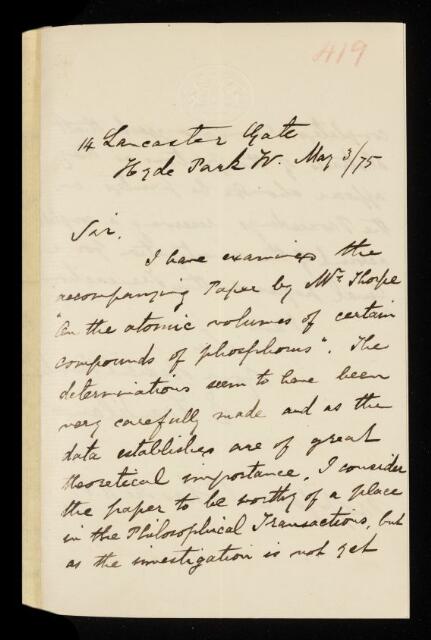 419
14 Lancaster Gate
Hyde Park W. May 3/75
Sir,
I have examined the
accompanying Paper by Mr. Thorpe
"On the atomic volumes of certain
compounds of phosphorus". The
determinations seem to have been
very carefully made and as the
data establishes are of great
theoretical importance, I consider
the paper to be worthy of a place
in the Philosophical Transactions, but
as the investigation is not yet